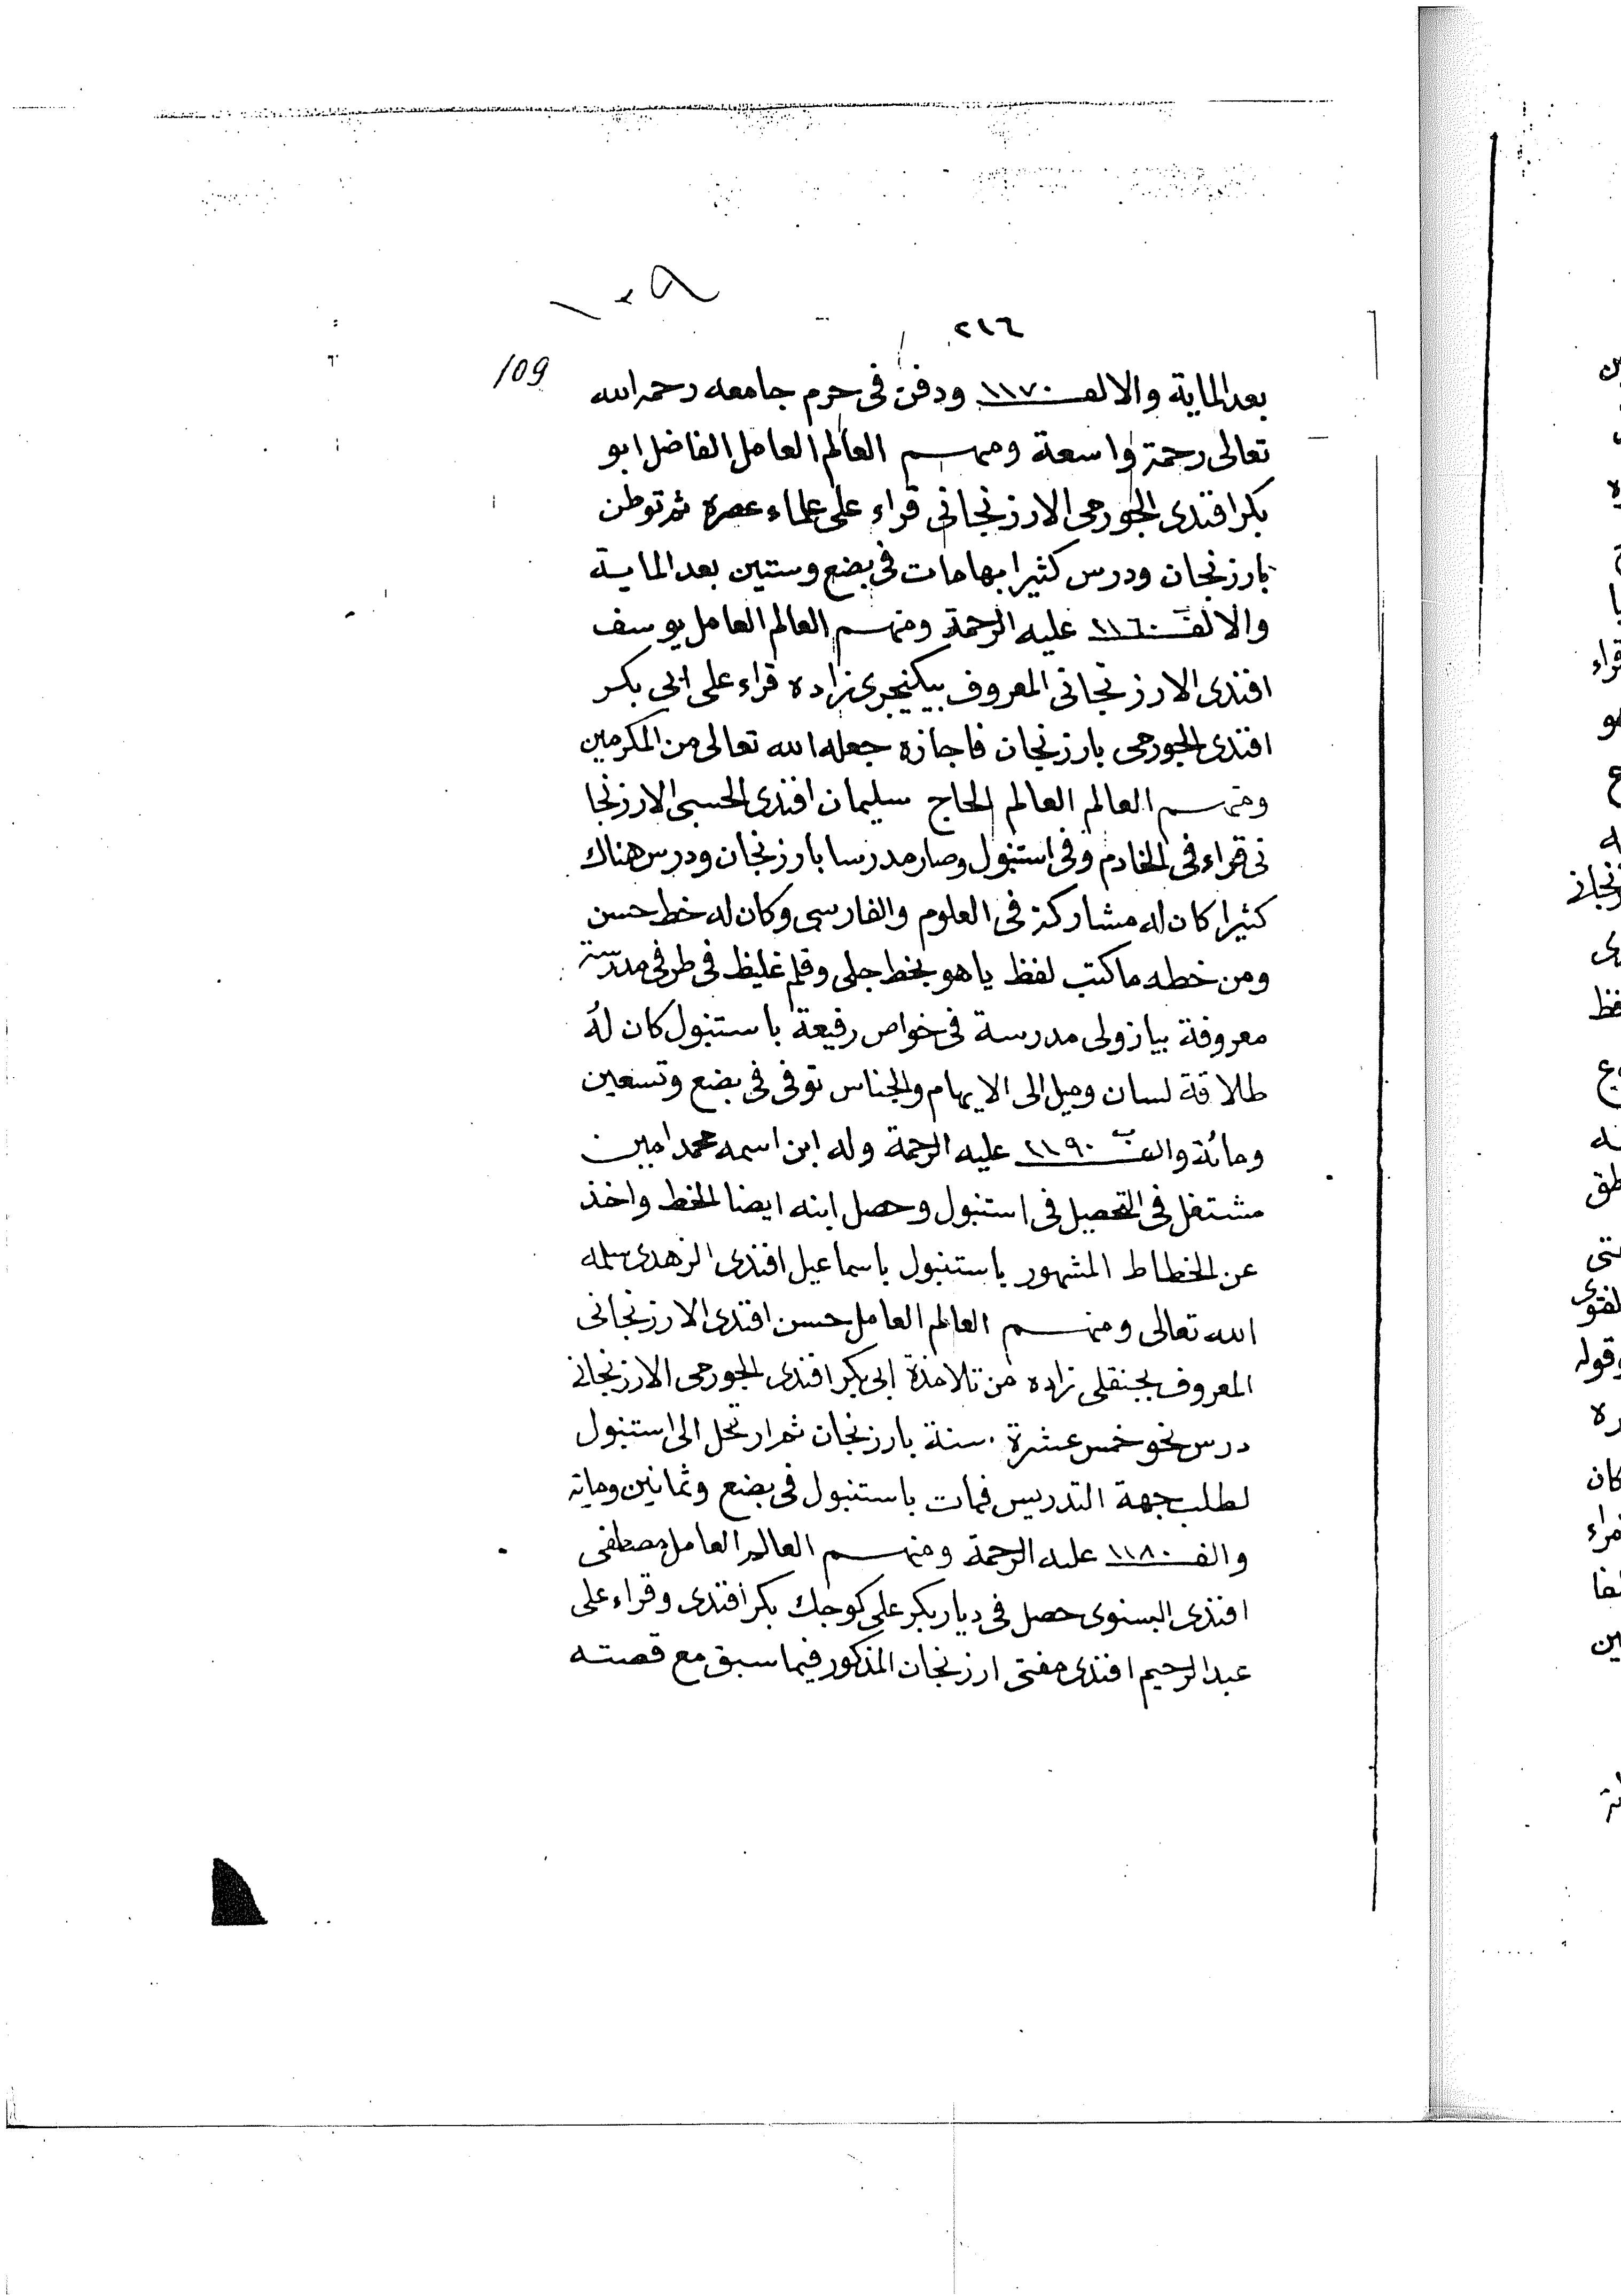 ١٠٩
٢١٦
109
بعد الماية والالف ١١٧٠ ودفن فى حرم جامعه رحمه الله
تعالى رحمة واسعة ومنهم العالم العامل الفاضل ابو
بكر افندى الجورجى الارزنجانى قراء على علماء عصره ثم توطن
بارزنجان ودرس كثيرا بها مات فى بضع وستين بعد الماية
والالف ١١٦٠ عليه الرحمة ومنهم العالم العامل يوسف
افندى الارزنجانى المعروف بيكنيجرى زاده قراء على ابى بكر
افندى الجورجى بارزنجان فاجازه جعله الله تعالى من المكرمين
ومنهم العالم العالم الحاج سليمان افندى الحسبى الارزنجا
نى قراء فى الخادم وفى استنبول وصار مدرسا بارزنجان ودرس هناك
كثيرا كان له مشاركة فى العلوم والفارسى وكان له خط حسن
ومن خطه ما كتب لفظ ياهو بخط جلى وقلم غليظ فى طرفى مدرسة
معروفة بيازولى مدرسة فى خواص رفيعة باستنبول كان له
طلاقة لسان وميل الى الايهام والجناس توفى فى بضع وتسعين
ومائة والف ١١٩٠ عليه الرحمة وله ابن اسمه محمد امين
مشتغل فى التحصيل فى استنبول وحصل ابنه ايضا الخط واخذ
عن الخطاط المشهور باستنبول باسماعيل افندى الزهدى سلمه
الله تعالى ومنهم العالم العامل حسن افندى الارزنجانى
المعروف بجنقلى زاده من تلامذة ابى بكر افندى الجورجى الارزنجانى
درس نحو خمس عشرة سنة بارزنجان ثم ارتحل الى استنبول
لطلب جهة التدريس فمات باستنبول فى بضع وثمانين وماية
والف ١١٨٠ عليه الرحمة ومنهم العالم العامل مصطفى
افندى البسنوى حصل فى دياربكر على كوجك بكر افندى وقراء على
عبد الرحيم افندى مفتى ارزنجان المذكور فيما سبق مع قصته